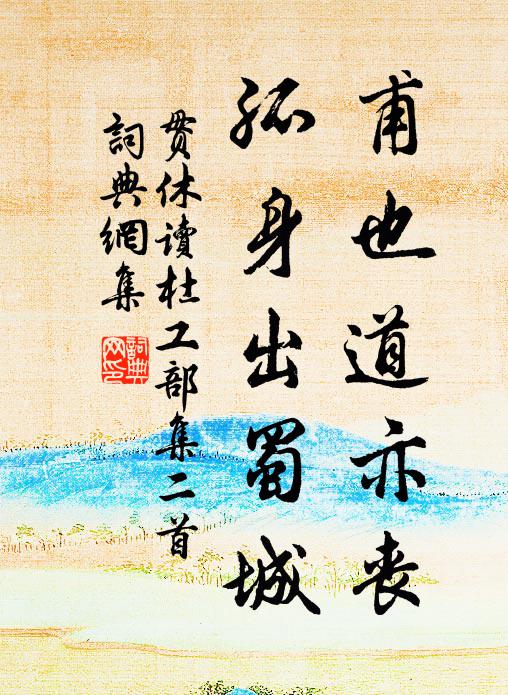 甫也道亦丧
孤身出蜀城
贯休讀杜工部集二首
詞典網集
詞典
网印